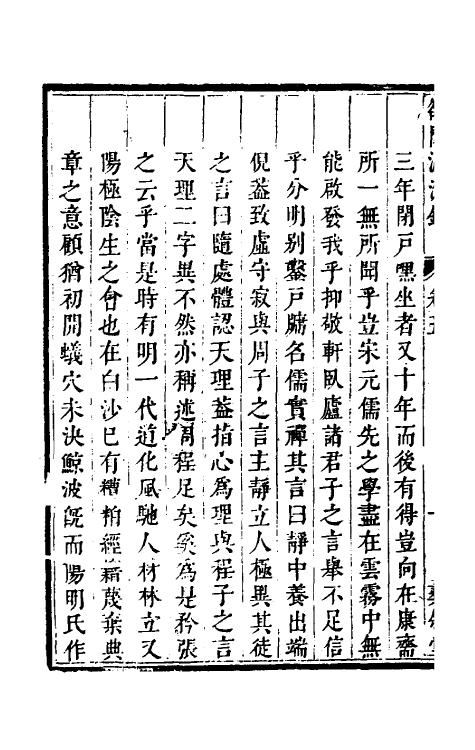 三年閉戸嘿坐者又十年而後有得豈向在康齋
所一無所聞乎豈宋元儒先之學盡在雲霧中無
能啟發我乎抑敬軒臥廬諸君子之言舉不足信
乎分明别鑿戸牖名儒實禪其言曰靜中養出端
倪葢致虛守寂與周子之言主靜立人極異其徒
之言曰隨處體認天理葢指心爲理與程子之言
天理二字異不然亦稱述周程足矣奚爲是矜張
之云乎當是時有明一代道化風馳人材林立又
陽極陰生之會也在白沙已有糟粕經籍蔑棄典
章之意顧猶初開蟻穴未決鯨波旣而陽明氏作